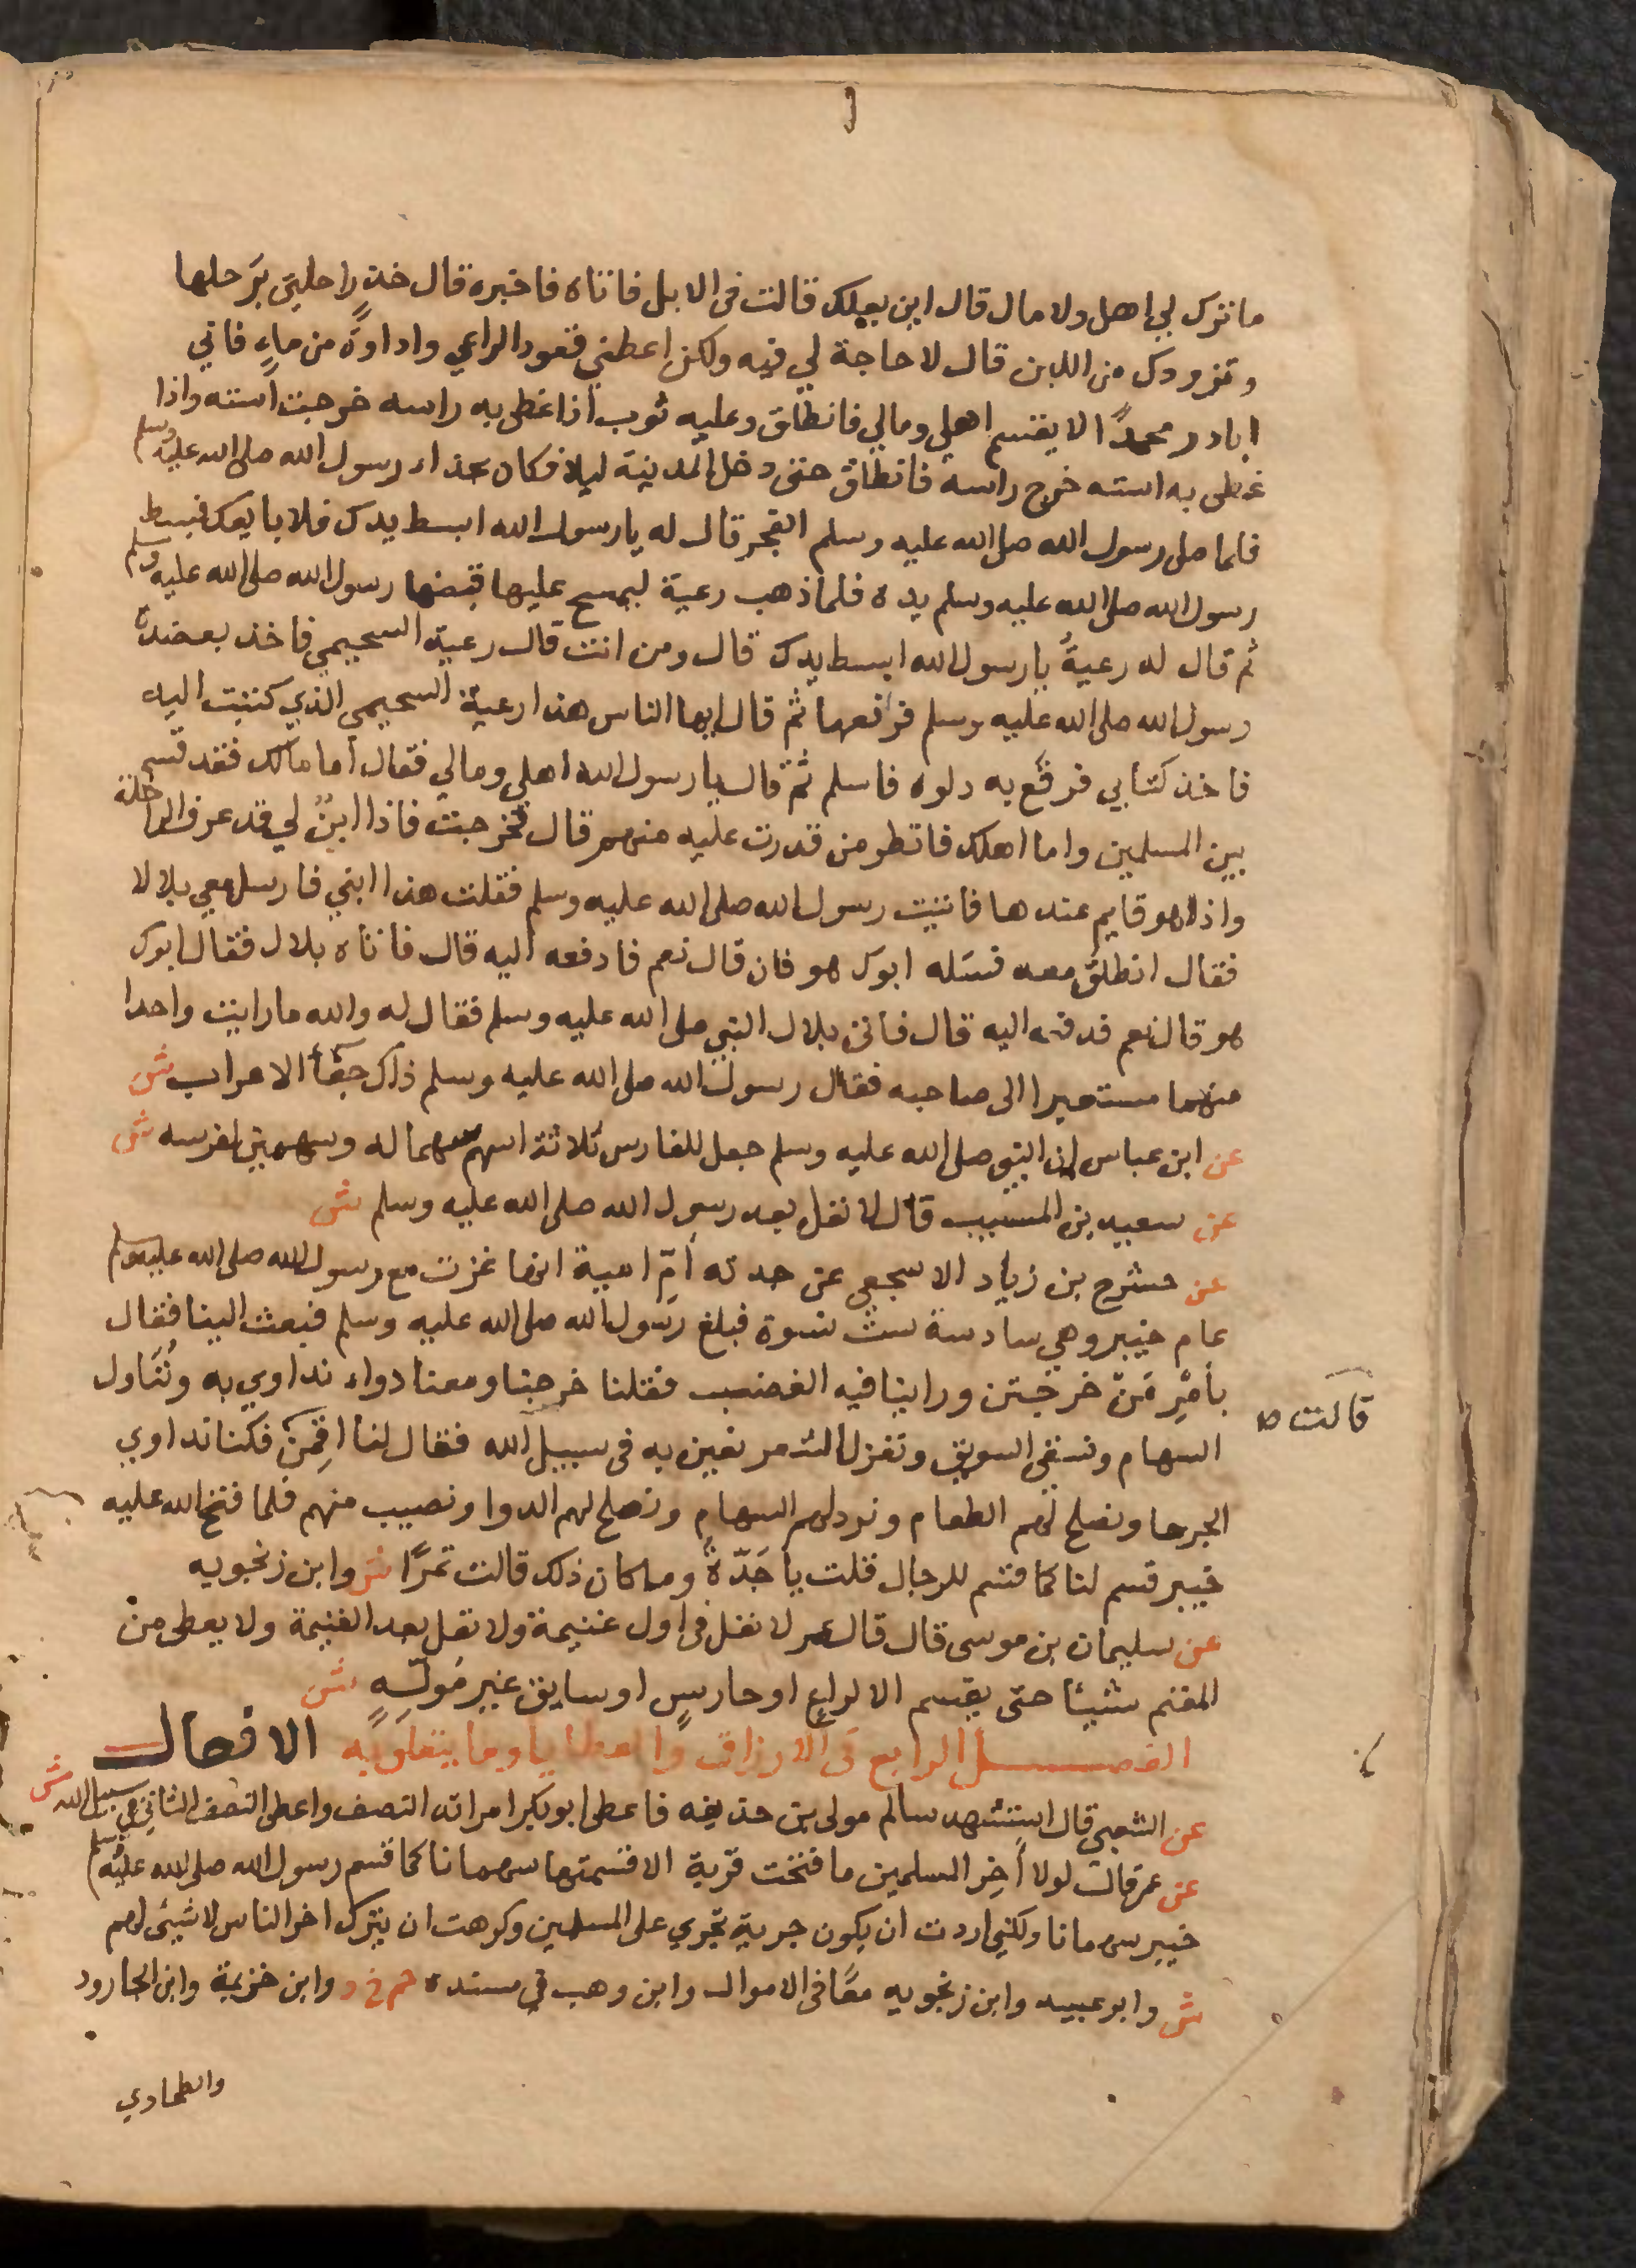 ما ترك لي اهل ولا مال قال اين بعلك قالت في الابل فاتاه فاخبره قال خذ راحلتي برحلها
وتزودك من اللبن قال لا حاجة لي فيه ولكن اعطني قعود الراعي واداوة من ماءٍ فاني
ابادر محمدًا الا يقسم اهلي ومالي فانطلق وعليه ثوب اذا غطى به راسه خرجت استه واذا
غطى به استه خرج راسه فانطلق حتى دخل المدينة ليلا فكان بحذاء رسول الله صلى الله عليه وسلم
فلما صلى رسول الله صلى الله عليه وسلم الفجر قال له يا رسول الله ابسط يدك فلابايعك فبسط
رسول الله صلى الله عليه وسلم يده فلما ذهب رعية ليمسح عليها قبضها رسول الله صلى الله عليه وسلم
ثم قال له رعيةُ يا رسول الله ابسط يدك قال ومن انت قال رعية السحيمي فاخذ بعضده
رسول الله صلى الله عليه وسلم فرافعها ثم قال ايها الناس هذا رعية السحيمي الذي كتبت اليه
فاخذ كتابي فرقع به دلوه فاسلم ثم قال يا رسول الله اهلي ومالي فقال اما مالك فقد قسم
بين المسلمين واما اهلك فانظر من قدرت عليه منهم قال فخرجت فاذا ابنٌ لي قد عرف الراحلة
واذا هو قايم عندها فاتيت رسول الله صلى الله عليه وسلم فقلت هذا ابني فارسل معي بلالا
فقال انطلق معه فسَله ابوك هو فان قال نعم فادفعه اليه قال فاتاه بلال فقال ابوك
هو قال نعم فدفعه اليه قال فاتى بلال النبي صلى الله عليه وسلم فقال له والله ما رايت واحدا
منهما مستعبرا الى صاحبه فقال رسول الله صلى الله عليه وسلم ذاك جفأ الاعراب ش
عن ابن عباس ان النبي صلى الله عليه وسلم جعل للفارس ثلاثة اسهم سهما له وسهمين لفرسه ش
عن سعيد بن المسيب قال لا نفل بعد رسول الله صلى الله عليه وسلم ش
عن حشرج بن زياد الاشجعي عن جدته امّ ابيه انها غزت مع رسول الله صلى الله عليه وسلم
عام خيبر وهي سادسة ستّ نسوة فبلغ رسول الله صلى الله عليه وسلم فبعث الينا فقال
بأمْرِ مَنْ خرجتن وراينا فيه الغضب فقلنا خرجنا ومعنا دواء نداوي به ونُنَاول
قالت ص
السهام ونسقي السويق ونغزل الشعر نعين به في سبيل الله فقال لنا اقِمْنَ فكنا نداوي
الجرحا ونصلح لهم الطعام ونرد لهم السهام ونصلح لهم الدوا ونصيب منهم فلما فتح الله عليه
خيبر قسم لنا كما قسم للرجال قلت يا جَدّةُ وما كان ذلك قالت تمرًا ش وابن زنجويه
عن سليمان بن موسى قال قال عمر لا نفل في اول غنيمة ولا نفل بعد الغنيمة ولا يعطى من
المغنم شيئا حتى يقسم الا لراعٍ او حارسٍ او سايق غير مُولّيهِ ش
الفصل الرابع في الارزاق والعطايا وما يتعلق به الافعال
عن الشعبي قال استشهد سالم مولى بن حذيفه فاعطى ابو بكر امراته النصف واعطى النصف الثاني في سبيل الله ش
عن عمر قال لولا أخِر المسلمين ما فتحت قرية الا قسمتها سهمانا كما قسم رسول الله صلى الله عليه وسلم
خيبر سهمانا ولكني اردت ان يكون جرية تجري على المسلمين وكرهت ان يترك اخر الناس لا شيئ لهم
ش وابو عبيد وابن زنجويه معًا في الاموال وابن وهب في مسنده حم خ د وابن خزيمة وابن الجارود
والطحاوي